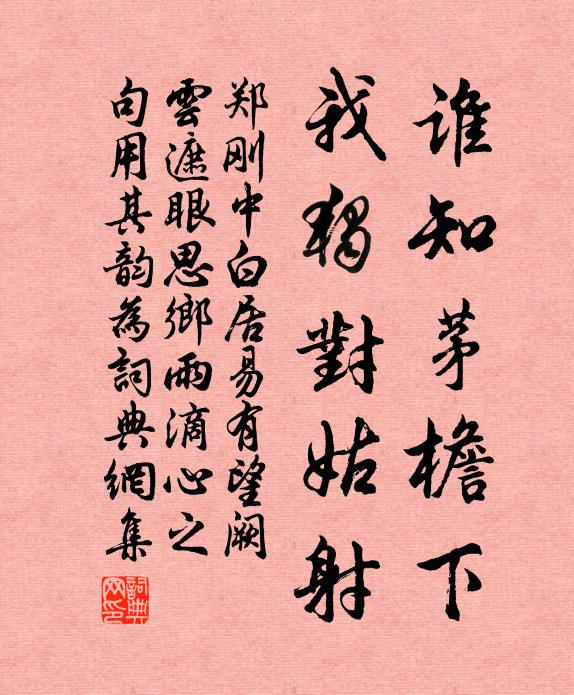 谁知茅檐下
我独對姑射
郑刚中白居易有望阙
雲遮眼思鄉雨滴心之
句用其韵為詞典網集
詞典網印